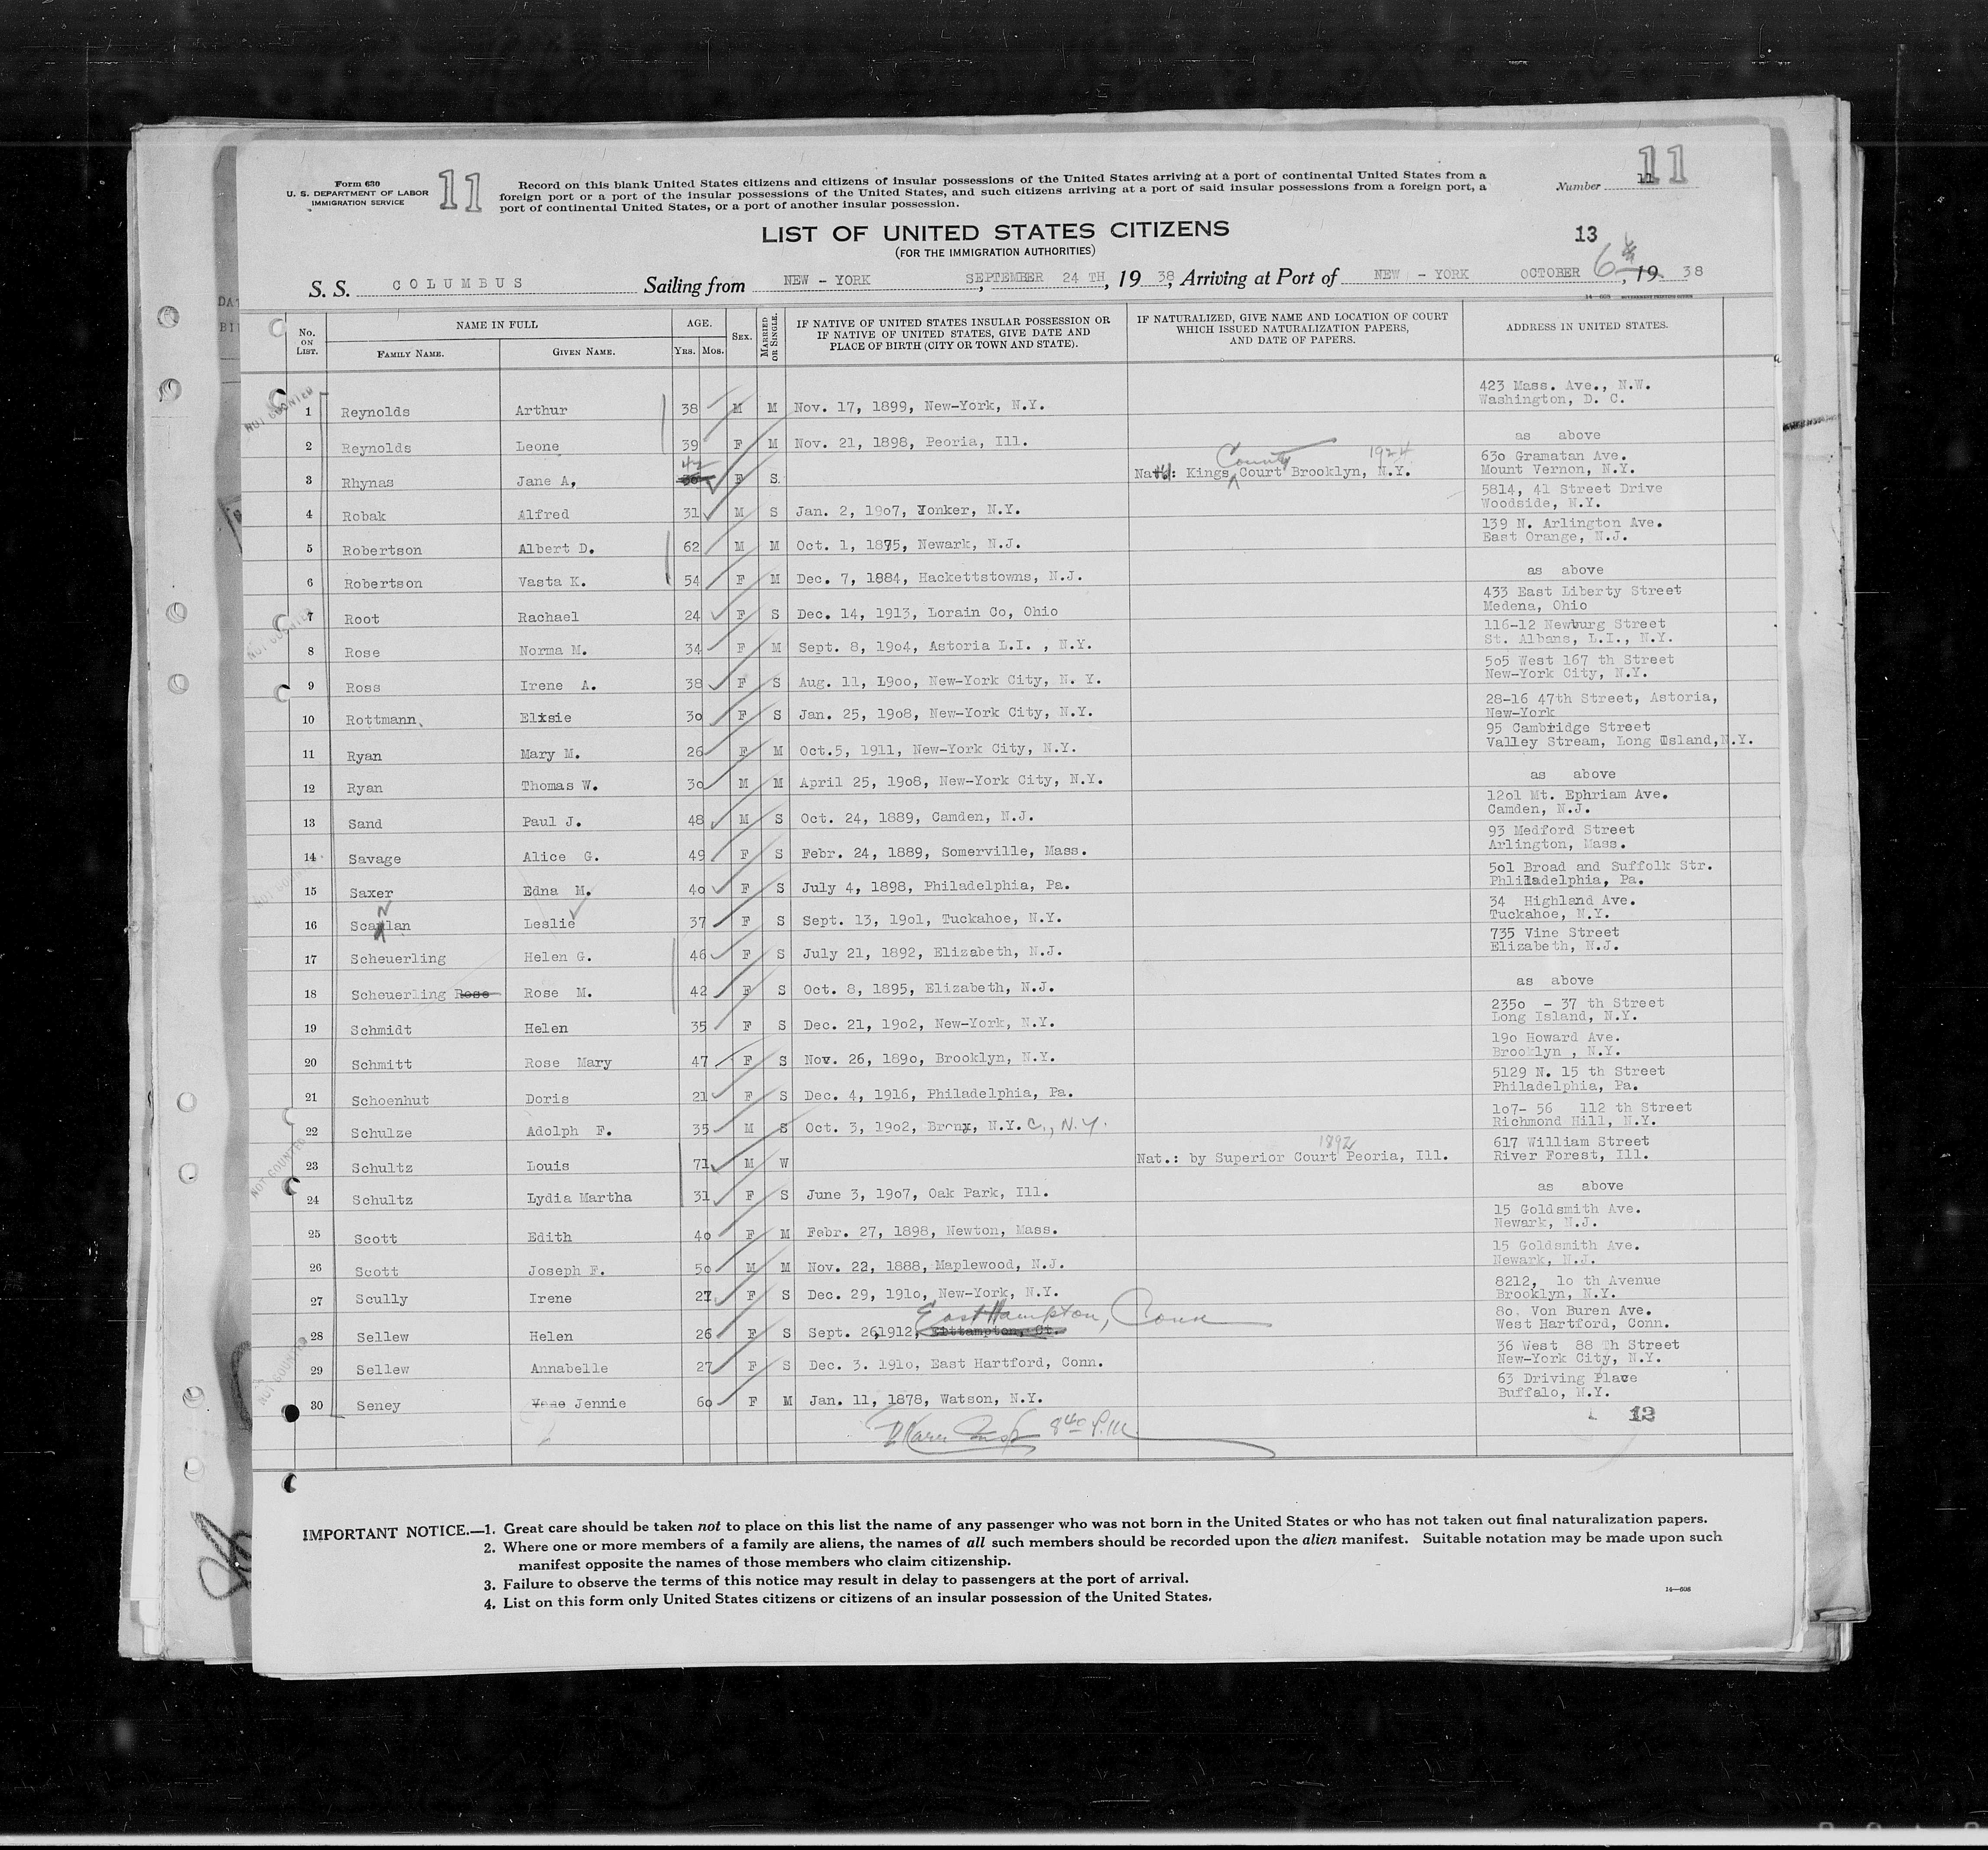 Form 630
U. S. DEPARTMENT OF LABOR
IMMIGRATION SERVICE
11
Record on this blank United States citizens and citizens of insular possessions of the United States arriving at a port of continental United States from a
foreign port or a port of the insular possessions of the United States, and such citizens arriving at a port of said insular possessions from a foreign port, a
port of continental United States, or a port of another insular possession.
Number 11
11
LIST OF UNITED STATES CITIZENS
(FOR THE IMMIGRATION AUTHORITIES)
13
S. S. COLUMBUS Sailing from NEW - YORK SEPTEMBER 24 TH, 19 38, Arriving at Port of NEW - YORK OCTOBER 6th, 19 38
No. ON LIST. NAME IN FULL FAMILY NAME. GIVEN NAME. AGE. YRS. MOS. SEX. MARRIED OR SINGLE. IF NATIVE OF UNITED STATES INSULAR POSSESSION OR IF NATIVE OF UNITED STATES, GIVE DATE AND PLACE OF BIRTH (CITY OR TOWN AND STATE). IF NATURALIZED, GIVE NAME AND LOCATION OF COURT WHICH ISSUED NATURALIZATION PAPERS, AND DATE OF PAPERS. ADDRESS IN UNITED STATES.
NOT COUNTED
1 Reynolds Arthur 38 M M Nov. 17, 1899, New-York, N.Y. 423 Mass. Ave., N.W. Washington, D. C.
2 Reynolds Leone 39 F M Nov. 21, 1898, Peoria, Ill. as above
3 Rhynas Jane A, 42 F S. Natd: Kings County Court Brooklyn, N.Y. 1924 630 Gramatan Ave. Mount Vernon, N.Y.
4 Robak Alfred 31 M S Jan. 2, 1907, Yonker, N.Y. 5814, 41 Street Drive Woodside, N.Y.
5 Robertson Albert D. 62 M M Oct. 1, 1875, Newark, N.J. 139 N. Arlington Ave. East Orange, N.J.
6 Robertson Vasta K. 54 F M Dec. 7, 1884, Hackettstowns, N.J. as above
7 Root Rachael 24 F S Dec. 14, 1913, Lorain Co, Ohio 433 East Liberty Street Medena, Ohio
NOT COUNTED
8 Rose Norma M. 34 F M Sept. 8, 1904, Astoria L.I. , N.Y. 116-12 Newburg Street St. Albans, L.I., N.Y.
9 Ross Irene A. 38 F S Aug. 11, 1900, New-York City, N. Y. 505 West 167 th Street New-York City, N.Y.
10 Rottmann Elxsie 30 F S Jan. 25, 1908, New-York City, N.Y. 28-16 47th Street, Astoria, New-York
11 Ryan Mary M. 26 F M Oct.5, 1911, New-York City, N.Y. 95 Cambridge Street Valley Stream, Long Island,N.Y.
12 Ryan Thomas W. 30 M M April 25, 1908, New-York City, N.Y. as above
13 Sand Paul J. 48 M S Oct. 24, 1889, Camden, N.J. 1201 Mt. Ephriam Ave. Camden, N.J.
14 Savage Alice G. 49 F S Febr. 24, 1889, Somerville, Mass. 93 Medford Street Arlington, Mass.
NOT COUNTED
15 Saxer Edna M. 40 F S July 4, 1898, Philadelphia, Pa. 501 Broad and Suffolk Str. Philadelphia, Pa.
16 Scanlan Leslie 37 F S Sept. 13, 1901, Tuckahoe, N.Y. 34 Highland Ave. Tuckahoe, N.Y.
17 Scheuerling Helen G. 46 F S July 21, 1892, Elizabeth, N.J. 735 Vine Street Elizabeth, N.J.
18 Scheuerling Rose Rose M. 42 F S Oct. 8, 1895, Elizabeth, N.J. as above
19 Schmidt Helen 35 F S Dec. 21, 1902, New-York, N.Y. 2350 - 37 th Street Long Island, N.Y.
20 Schmitt Rose Mary 47 F S Nov. 26, 1890, Brooklyn, N.Y. 190 Howard Ave. Brooklyn , N.Y.
21 Schoenhut Doris 21 F S Dec. 4, 1916, Philadelphia, Pa. 5129 N. 15 th Street Philadelphia, Pa.
22 Schulze Adolph F. 35 M S Oct. 3, 1902, Bronx, N.Y. C., N.Y. 107- 56 112 th Street Richmond Hill, N.Y.
NOT COUNTED
23 Schultz Louis 71 M W Nat.: by Superior Court Peoria, Ill. 1892 617 William Street River Forest, Ill.
24 Schultz Lydia Martha 31 F S June 3, 1907, Oak Park, Ill. as above
25 Scott Edith 40 F M Febr. 27, 1898, Newton, Mass. 15 Goldsmith Ave. Newark, N.J.
26 Scott Joseph F. 50 M M Nov. 22, 1888, Maplewood, N.J. 15 Goldsmith Ave. Newark, N.J.
27 Scully Irene 27 F S Dec. 29, 1910, New-York, N.Y. 8212, 10 th Avenue Brooklyn, N.Y.
28 Sellew Helen 26 F S Sept. 26,1912, East Hampton, Conn 80. Von Buren Ave. West Hartford, Conn.
NOT COUNTED
29 Sellew Annabelle 27 F S Dec. 3. 1910, East Hartford, Conn. 36 West 88 Th Street New-York City, N.Y.
30 Seney Jennie 60 F M Jan. 11, 1878, Watson, N.Y. 63 Driving Place Buffalo, N.Y.
8 40 P.M.
IMPORTANT NOTICE.—1. Great care should be taken not to place on this list the name of any passenger who was not born in the United States or who has not taken out final naturalization papers.
2. Where one or more members of a family are aliens, the names of all such members should be recorded upon the alien manifest. Suitable notation may be made upon such
manifest opposite the names of those members who claim citizenship.
3. Failure to observe the terms of this notice may result in delay to passengers at the port of arrival.
4. List on this form only United States citizens or citizens of an insular possession of the United States.
14—608